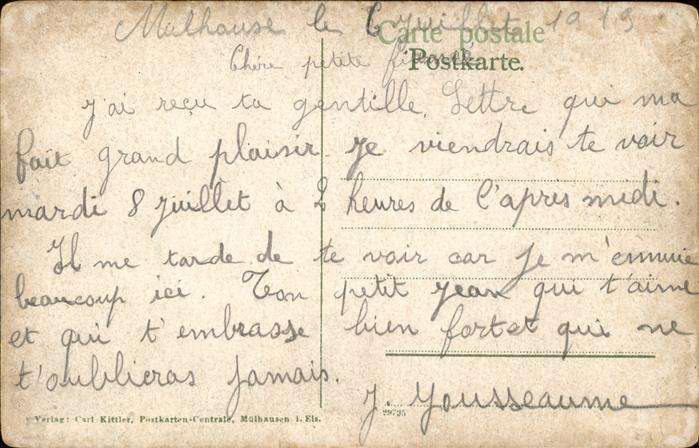 Mulhouse le 6 juillet 1913
Carte postale
Chère petite fiancée
Postkarte.
j'ai reçu ta gentille Lettre qui ma
fait grand plaisir je viendrais te voir
mardi 8 juillet à 2 heures de l'après midi.
Il me tarde de te voir car je m'ennuie
beaucoup ici. Ton petit jean qui t'aime
et qui t'embrasse bien fort et qui ne
t'oublieras jamais.
J. Jousseaume
Verlag: Carl Kittler, Postkarten-Centrale, Mülhausen i. Els.
29735